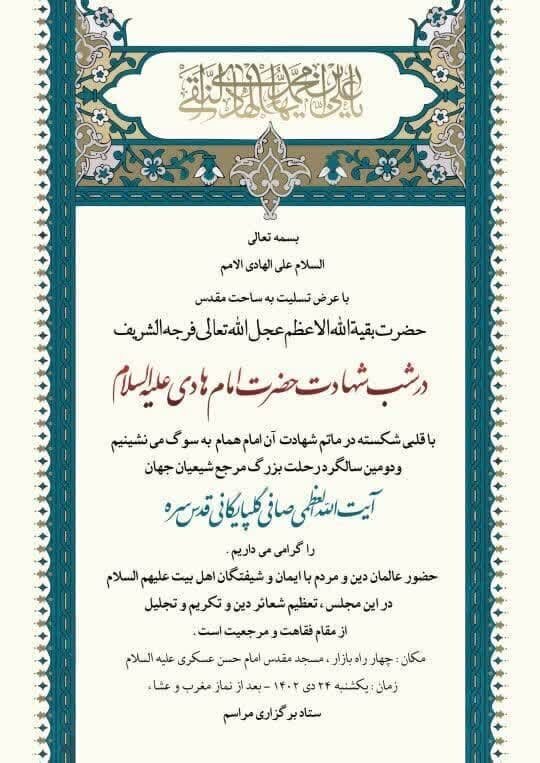 یا علی بن محمد ایها الهادی النقی
بسمه تعالی
السلام علی الهادی الامم
با عرض تسلیت به ساحت مقدس
حضرت بقیة الله الاعظم عجل الله تعالی فرجه الشریف
در شب شهادت حضرت امام هادی علیه السلام
با قلبی شکسته در ماتم شهادت آن امام همام به سوگ می نشینیم
ودومین سالگرد رحلت بزرگ مرجع شیعیان جهان
آیت الله العظمی صافی گلپایگانی قدس سره
را گرامی می داریم .
حضور عالمان دین و مردم با ایمان و شیفتگان اهل بیت علیهم السلام
در این مجلس ، تعظیم شعائر دین و تکریم و تجلیل
از مقام فقاهت و مرجعیت است .
مکان : چهار راه بازار ، مسجد مقدس امام حسن عسکری علیه السلام
زمان : یکشنبه ۲۴ دی ۱۴۰۲ - بعد از نماز مغرب و عشاء
ستاد برگزاری مراسم